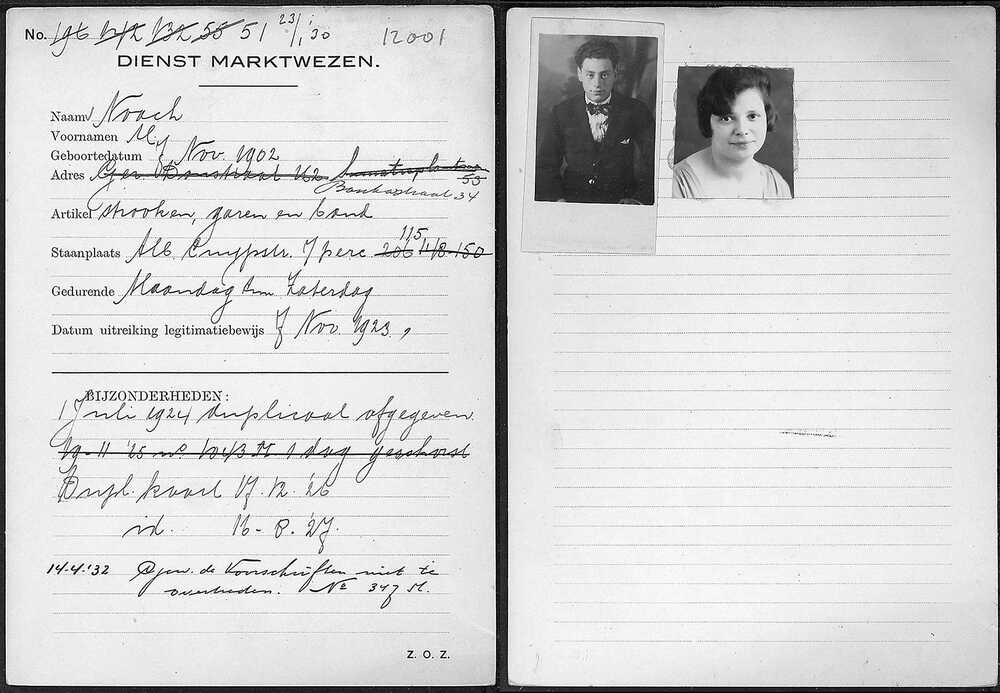 No. 196 1212 132 55 51 23/1 '30 12001
DIENST MARKTWEZEN.
Naam Noach
Voornamen M.
Geboortedatum 7 Nov. 1902
Adres Ger. Doustraat 162 Sumatraplantsoen 53
Bankastraat 34
Artikel strooken, garen en band
Staanplaats Alb. Cuypstr. 7 perc 206 115
Gedurende Maandag t/m Zaterdag
Datum uitreiking legitimatiebewijs 7 Nov. 1923.
BIJZONDERHEDEN:
1 Juli 1924 duplicaat afgegeven.
19-11 '25 no 1 dag geschorst
Dupl. kaart 17.12.'26
id. 16-8.'27.
14-4-'32 Gew. de Voorschriften niet te
overtreden. No 347 M.
Z. O. Z.